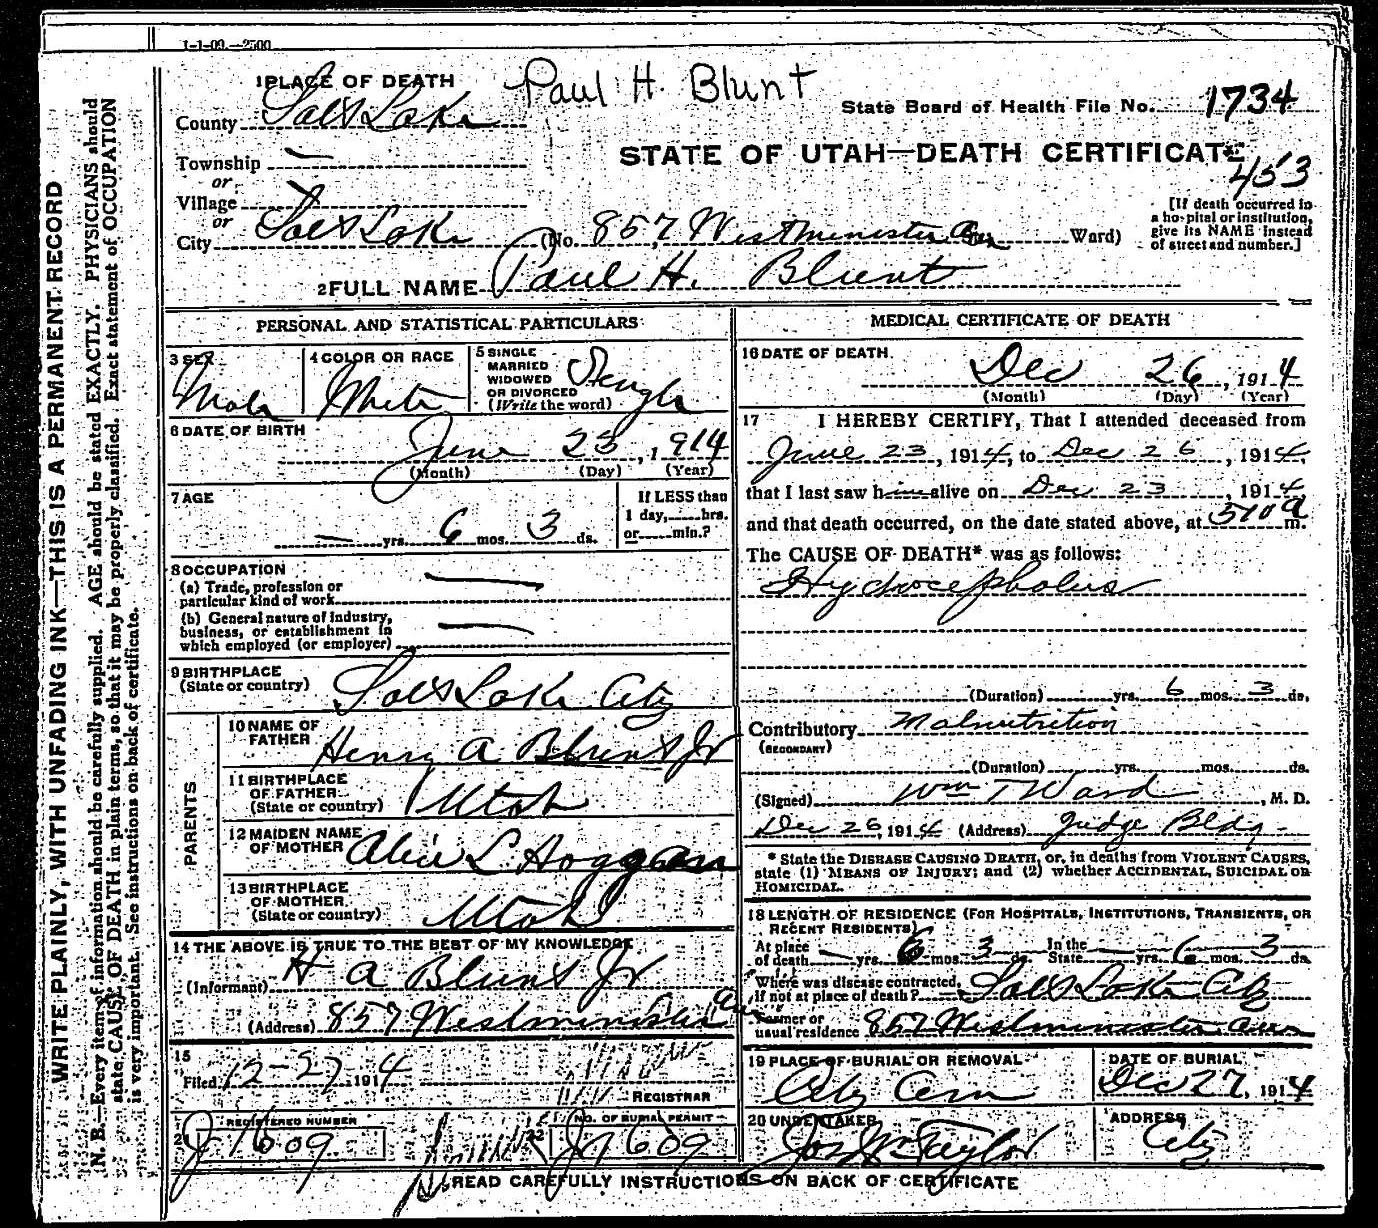 1-1-09.—2500
1 PLACE OF DEATH Paul H. Blunt
State Board of Health File No. 1734
County Salt Lake
STATE OF UTAH—DEATH CERTIFICATE
453
Township —
or
Village
or
City Salt Lake (No. 857 Westminister Ave Ward)
[If death occurred in
a hospital or institution,
give its NAME instead
of street and number.]
2 FULL NAME Paul H. Blunt
PERSONAL AND STATISTICAL PARTICULARS
3 SEX Male
4 COLOR OR RACE White
5 SINGLE
MARRIED
WIDOWED
OR DIVORCED
(Write the word) Single
6 DATE OF BIRTH June 23, 1914
(Month) (Day) (Year)
7 AGE — yrs. 6 mos. 3 ds.
If LESS than
1 day, hrs.
or min.?
8 OCCUPATION
(a) Trade, profession or
particular kind of work —
(b) General nature of industry,
business, or establishment in
which employed (or employer) —
9 BIRTHPLACE
(State or country) Salt Lake City
PARENTS
10 NAME OF
FATHER Henry A Blunt Jr
11 BIRTHPLACE
OF FATHER
(State or country) Utah
12 MAIDEN NAME
OF MOTHER Alice L Hoggan
13 BIRTHPLACE
OF MOTHER
(State or country) Utah
14 THE ABOVE IS TRUE TO THE BEST OF MY KNOWLEDGE
(Informant) H A Blunt Jr
(Address) 857 Westminister Ave
15
Filed 12-27 1914
REGISTRAR
REGISTERED NUMBER
J 1609
22 NO. OF BURIAL PERMIT
J 1609
MEDICAL CERTIFICATE OF DEATH
16 DATE OF DEATH
Dec 26, 1914
(Month) (Day) (Year)
17 I HEREBY CERTIFY, That I attended deceased from
June 23, 1914, to Dec 26, 1914,
that I last saw him alive on Dec 23, 1914
and that death occurred, on the date stated above, at 510 a m.
The CAUSE OF DEATH* was as follows:
Hydrocephalus
(Duration) yrs. 6 mos. 3 ds.
Contributory Malnutrition
(SECONDARY)
(Duration) yrs. mos. ds.
(Signed) Wm T Ward, M. D.
Dec 26, 1914 (Address) Judge Bldg-
* State the DISEASE CAUSING DEATH, or, in deaths from VIOLENT CAUSES,
state (1) MEANS OF INJURY; and (2) whether ACCIDENTAL, SUICIDAL OR
HOMICIDAL.
18 LENGTH OF RESIDENCE (FOR HOSPITALS, INSTITUTIONS, TRANSIENTS, OR
RECENT RESIDENTS)
At place
of death — yrs. 6 mos. 3 ds. In the
State — yrs. 6 mos. 3 ds.
Where was disease contracted,
if not at place of death? Salt Lake City
Former or
usual residence 857 Westminister Ave
19 PLACE OF BURIAL OR REMOVAL
City Cem
DATE OF BURIAL
Dec 27, 1914
20 UNDERTAKER
Jos Wm Taylor
ADDRESS
City
READ CAREFULLY INSTRUCTIONS ON BACK OF CERTIFICATE
WRITE PLAINLY, WITH UNFADING INK—THIS IS A PERMANENT RECORD
N. B.—Every item of information should be carefully supplied. AGE should be stated EXACTLY. PHYSICIANS should
state CAUSE OF DEATH in plain terms, so that it may be properly classified. Exact statement of OCCUPATION
is very important. See instructions on back of certificate.